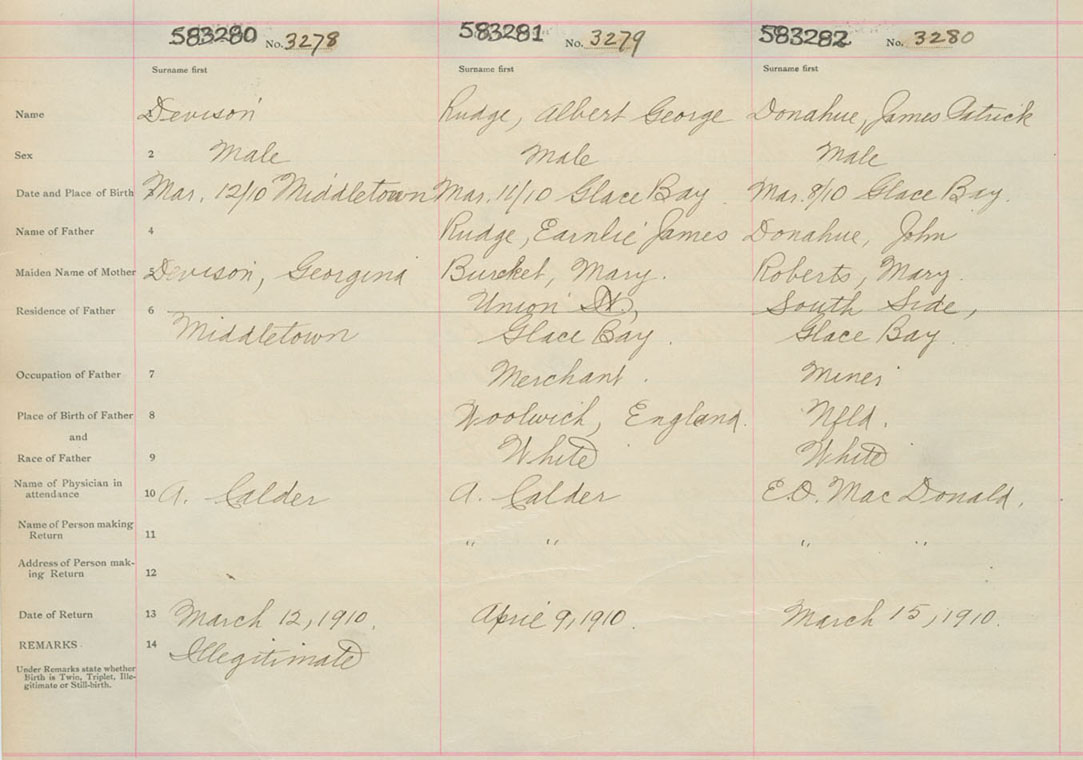 583280 No. 3278 583281 No. 3279 583282 No. 3280
Surname first Surname first Surname first
Name Devison Rudge, Albert George Donahue, James Patrick
Sex 2 Male Male Male
Date and Place of Birth Mar. 12/10 Middletown Mar. 16/10 Glace Bay Mar. 8/10 Glace Bay.
Name of Father 4 Rudge, Earnlie James Donahue, John
Maiden Name of Mother 5 Devison, Georgina Burcket, Mary. Roberts, Mary.
Union St, South Side,
Residence of Father 6 Middletown Glace Bay. Glace Bay.
Occupation of Father 7 Merchant. Miner
Place of Birth of Father 8 Woolwich, England. Nfld.
and
Race of Father 9 White White
Name of Physician in
attendance 10 A. Calder A. Calder E.D. MacDonald.
Name of Person making
Return 11 " " " "
Address of Person mak-
ing Return 12
Date of Return 13 March 12, 1910. April 9, 1910. March 15, 1910.
REMARKS 14 Illegitimate
Under Remarks state whether
Birth is Twin, Triplet, Ille-
gitimate or Still-birth.